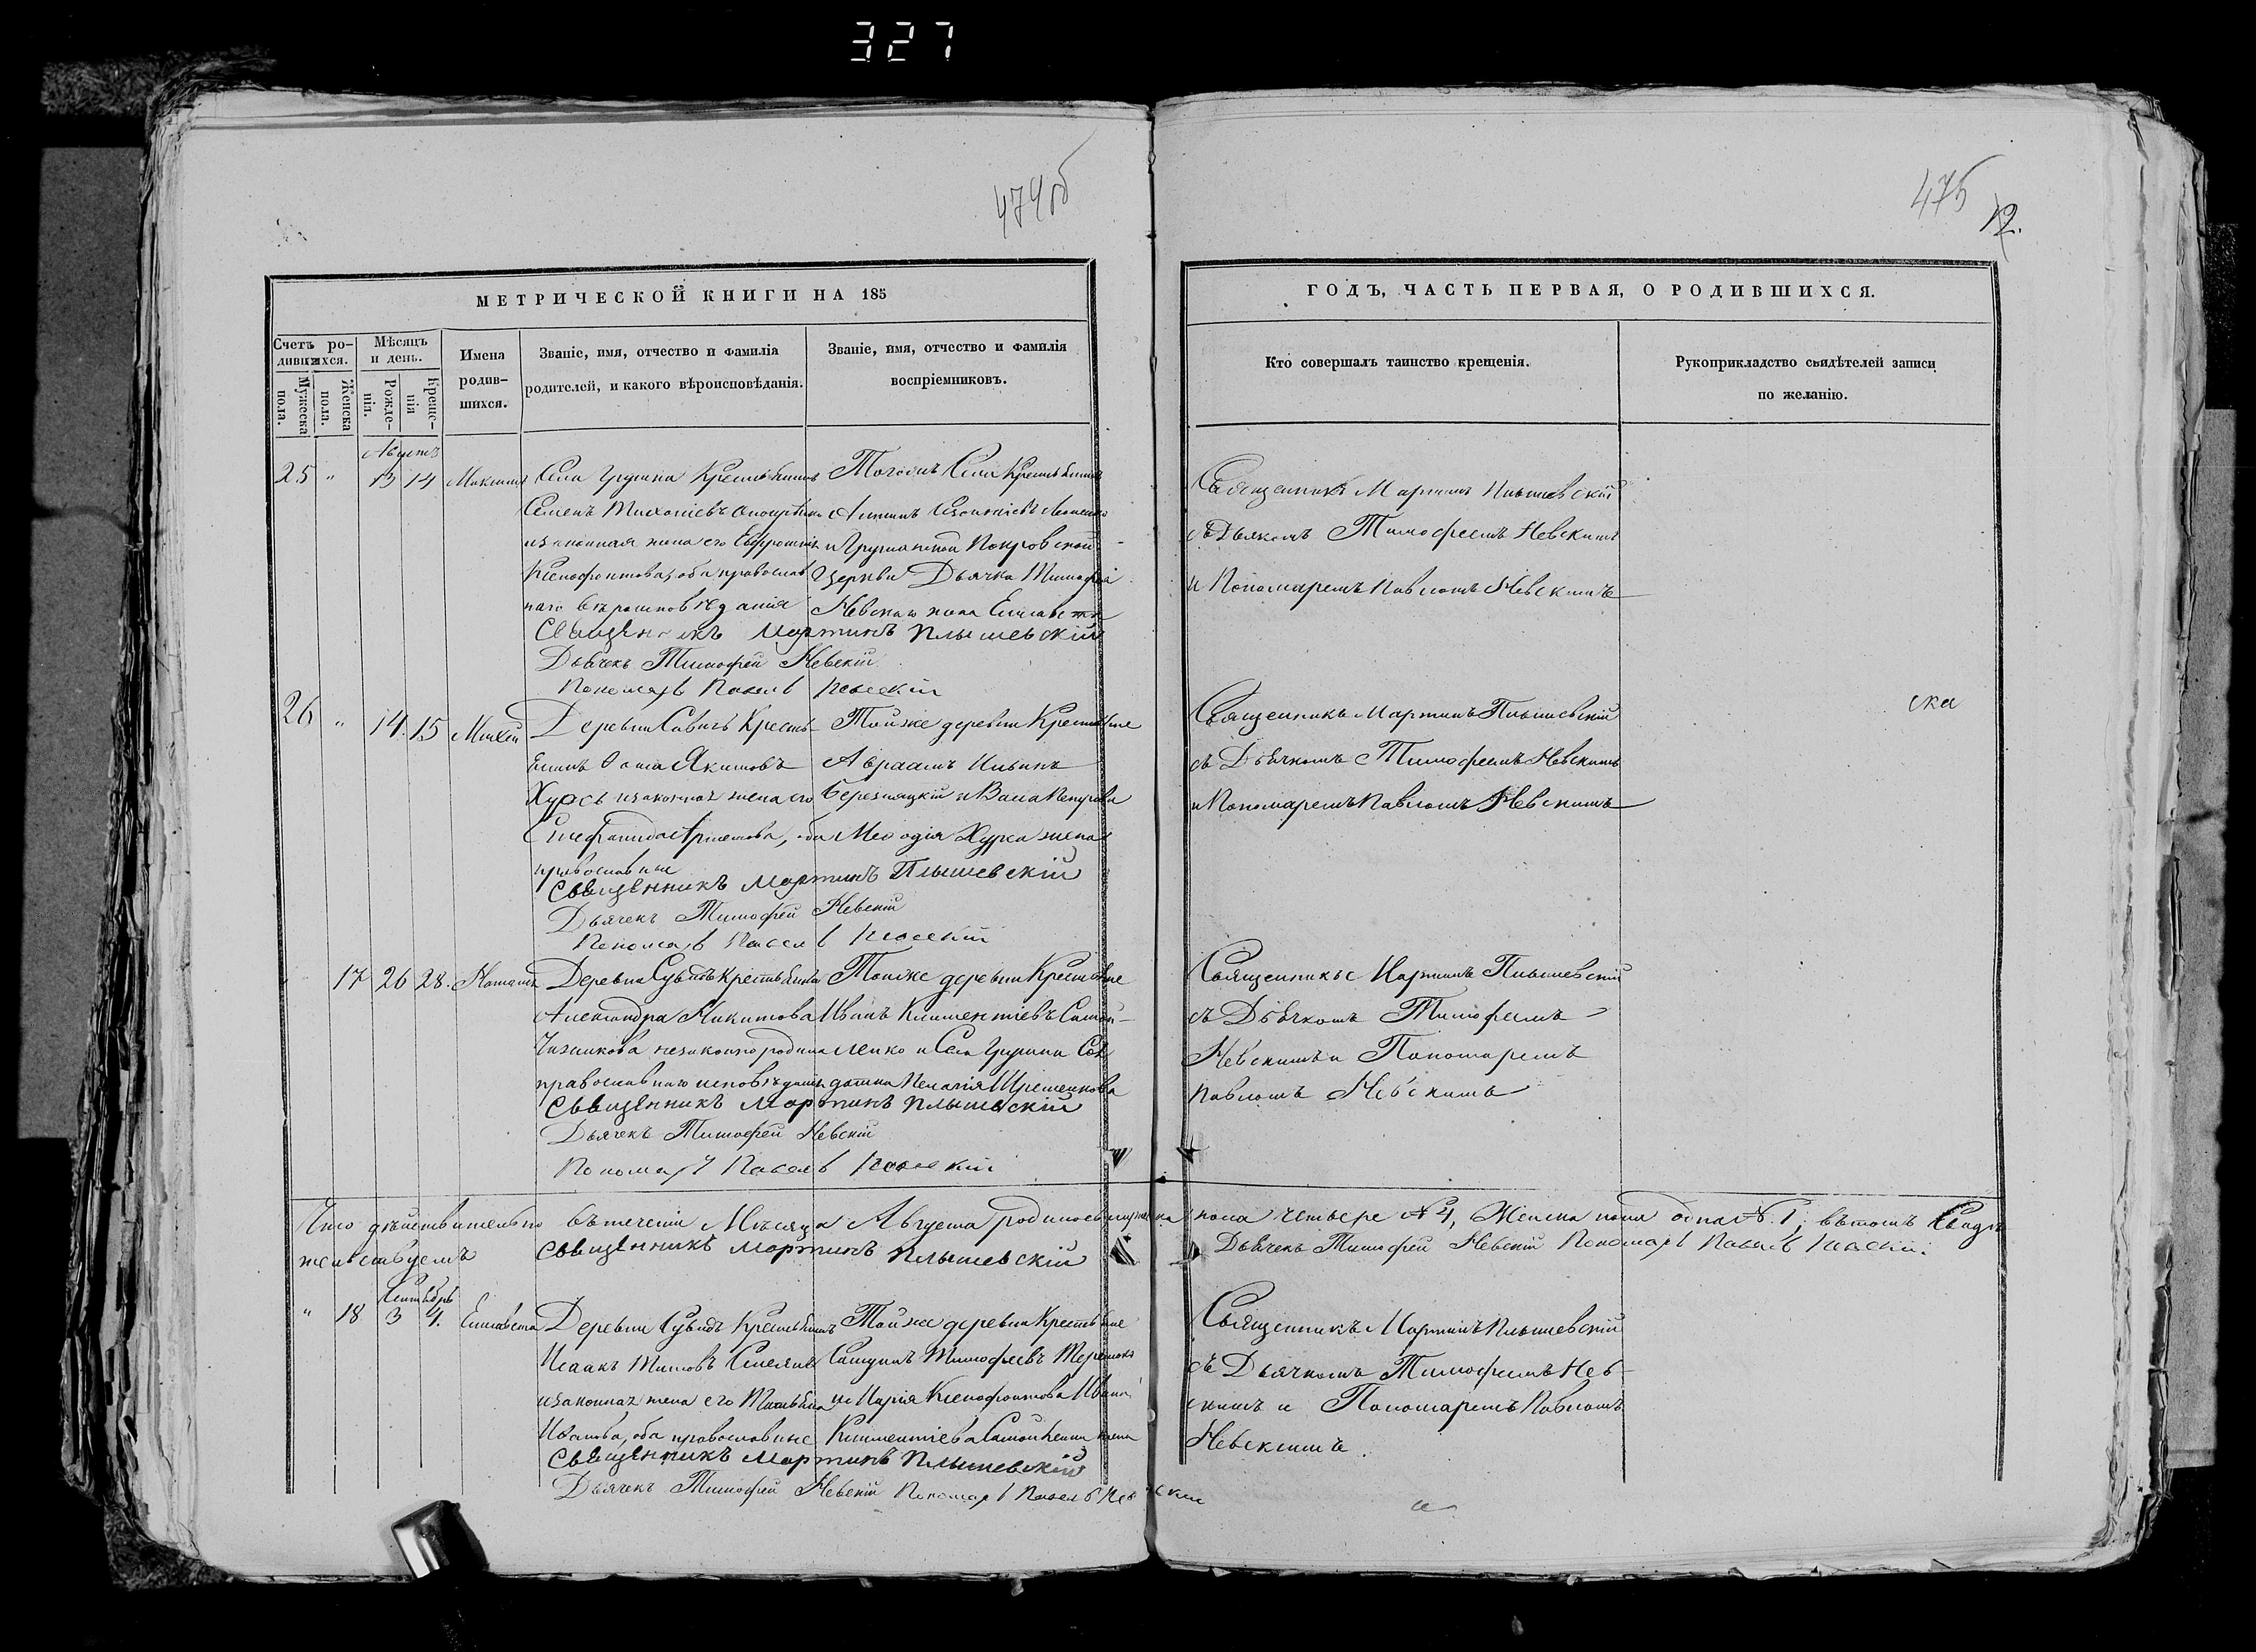 327
474об
475
12.
МЕТРИЧЕСКОЙ КНИГИ НА 185
ГОДЪ, ЧАСТЬ ПЕРВАЯ, О РОДИВШИХСЯ.
Счетъ ро-
дившихся.
Мужеска
пола.
Женска
пола.
Мѣсяцъ
и день.
Рожде-
нія.
Креще-
нія
Имена
родив-
шихся.
Званіе, имя, отчество и фамилія
родителей, и какого вѣроисповѣданія.
Званіе, имя, отчество и фамилія
воспріемниковъ.
Кто совершалъ таинство крещенія.
Рукоприкладство свидѣтелей записи
по желанію.
Августъ
25 " 13 14 Максимъ
Села Крестьянинъ
Семенъ
и законная жена его Евфросинія
Ксенофонтова, оба православ
наго вѣроисповѣданія
Священникъ Мартинъ Плышевскій
Дьячекъ Тимофей Невскій
Пономарь Павелъ Невскій
Тогожъ Села Крестьянинъ
и Покровской
Церкви Дьячка Тимофея
Невскаго жена Елисавета
Священникъ Мартинъ Плышевскій
съ Дьякомъ Тимофеемъ Невскимъ
и Пономаремъ Павломъ Невскимъ
26 " 14. 15 Михей
Деревни Крестья-
нинъ Якимовъ
Хурсъ и законная жена его
оба
православные
Священникъ Мартинъ Плышевскій
Дьячекъ Тимофей Невскій
Пономарь Павелъ Невскій
Тойже деревни Крестьяне
Авраамъ Ильинъ
жена
Священникъ Мартинъ Плышевскій
съ Дьячкомъ Тимофеемъ Невскимъ
и Пономаремъ Павломъ Невскимъ
ска
17 26 28. Наталія
Деревни Крестьянка
Александра Никитова
незаконнорожденна
православнаго исповѣданія
Священникъ Мартинъ Плышевскій
Дьячекъ Тимофей Невскій
Пономарь Павелъ Невскій
Тойже деревни Крестьяне
Иванъ Климентіевъ Самой-
ленко и Села
Священникъ Мартинъ Плышевскій
съ Дьячкомъ Тимофеемъ
Невскимъ и Пономаремъ
Павломъ Невскимъ
Что дѣйствительно въ теченіи Мѣсяца Августа родилось мужеска пола четыре № 4, Женска пола одна №. 1, въ томъ Свидѣ
тельствуемъ Священникъ Мартинъ Плышевскій Дьячекъ Тимофей Невскій Пономарь Павелъ Невскій
Сентябрь
" 18 3 4. Елисавета
Деревни Крестьянинъ
Исаакъ Титовъ
и законная жена его Татьяна
Иванова, оба православные
Священникъ Мартинъ Плышевскій
Дьячекъ Тимофей Невскій Пономарь Павелъ Невскій
Тойже деревни Крестьяне
Тимофеевъ
и Марія Ксенофонтова Ивана
Климентіева Самойленка жена
Священникъ Мартинъ Плышевскій
съ Дьячкомъ Тимофеемъ Нев-
скимъ и Пономаремъ Павломъ
Невскимъ